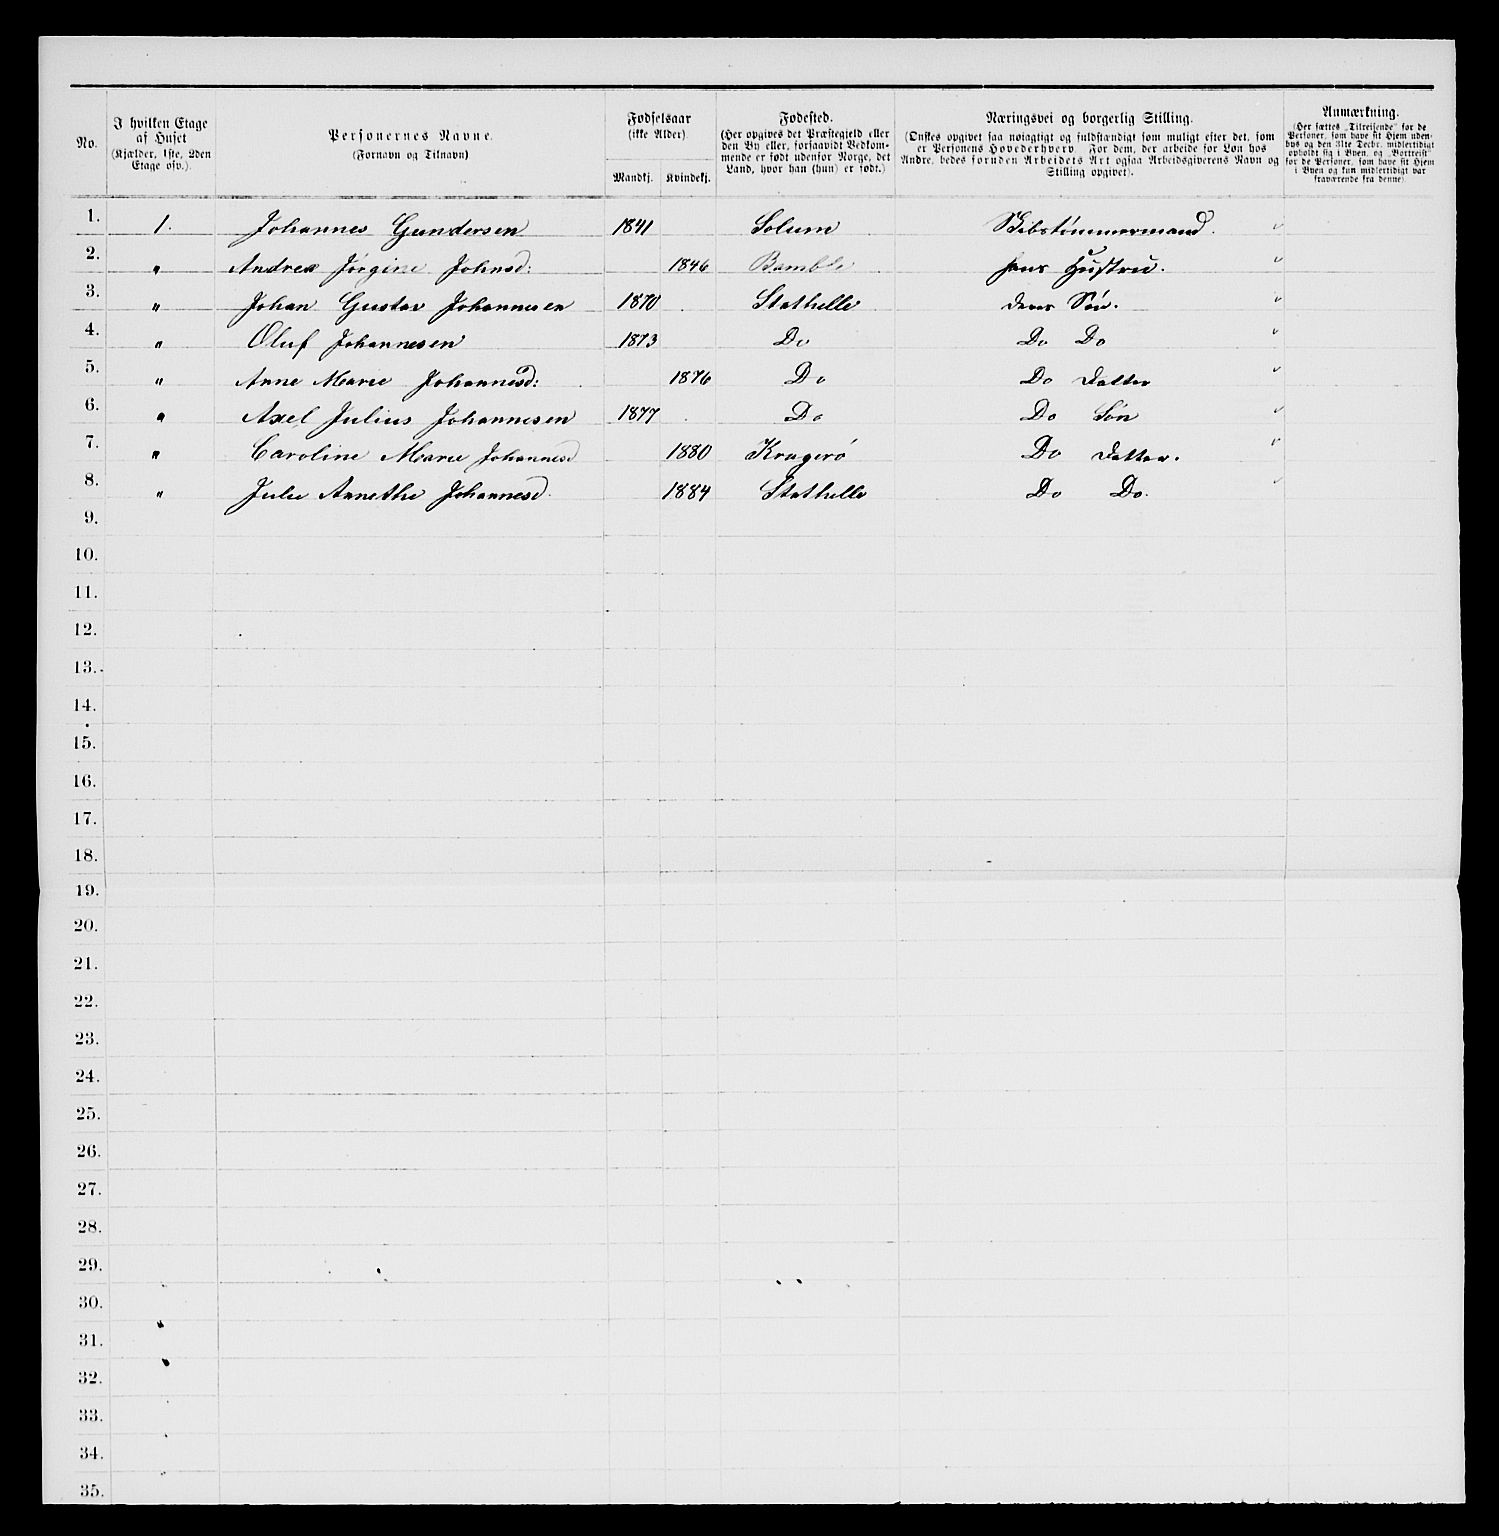 No.
I hvilken Etage
af Huset
(Kjælder, 1ste, 2den
Etage osv.).
Personernes Navne.
(Fornavn og Tilnavn)
Fødselsaar
(ikke Alder).
Mandkj. Kvindekj.
Fødested.
(Her opgives det Præstegjeld eller
den By eller, forsaavidt Vedkom-
mende er født udenfor Norge, det
Land, hvor han (hun) er født.)
Næringsvei og borgerlig Stilling.
(Ønskes opgivet saa nøiagtigt og fuldstændigt som muligt efter det, som
er Personens Hovederhverv. For dem, der arbeide for Løn hos
Andre, bedes foruden Arbeidets Art ogsaa Arbeidsgiverens Navn og
Stilling opgivet).
Anmærkning.
(Her sættes „Tilreisende" for de
Personer, som have sit Hjem uden-
bys og den 31te Decbr. midlertidigt
opholdt sig i Byen, og „Bortreist"
for de Personer, som have sit Hjem
i Byen og kun midlertidigt var
fraværende fra denne).
1. 1. Johannes Gundersen 1841 Solum Skibstømmermand.
2. " Andrea Jørgine Johnsd: 1846 Bamble hans Hustru.
3. " Johan Gustav Johannesen 1870 Stathelle deres Søn.
4. " Oluf Johannesen 1873 Do Do Do
5. " Anne Marie Johannesd: 1876 Do Do Datter
6. " Axel Julius Johannesen 1877 Do Do Søn
7. " Caroline Marie Johannesd 1880 Kragerø Do Datter.
8. " Julie Annethe Johannesd. 1884 Stathelle Do Do.
9.
10.
11.
12.
13.
14.
15.
16.
17.
18.
19.
20.
21.
22.
23.
24.
25.
26.
27.
28.
29.
30.
31.
32.
33.
34.
35.